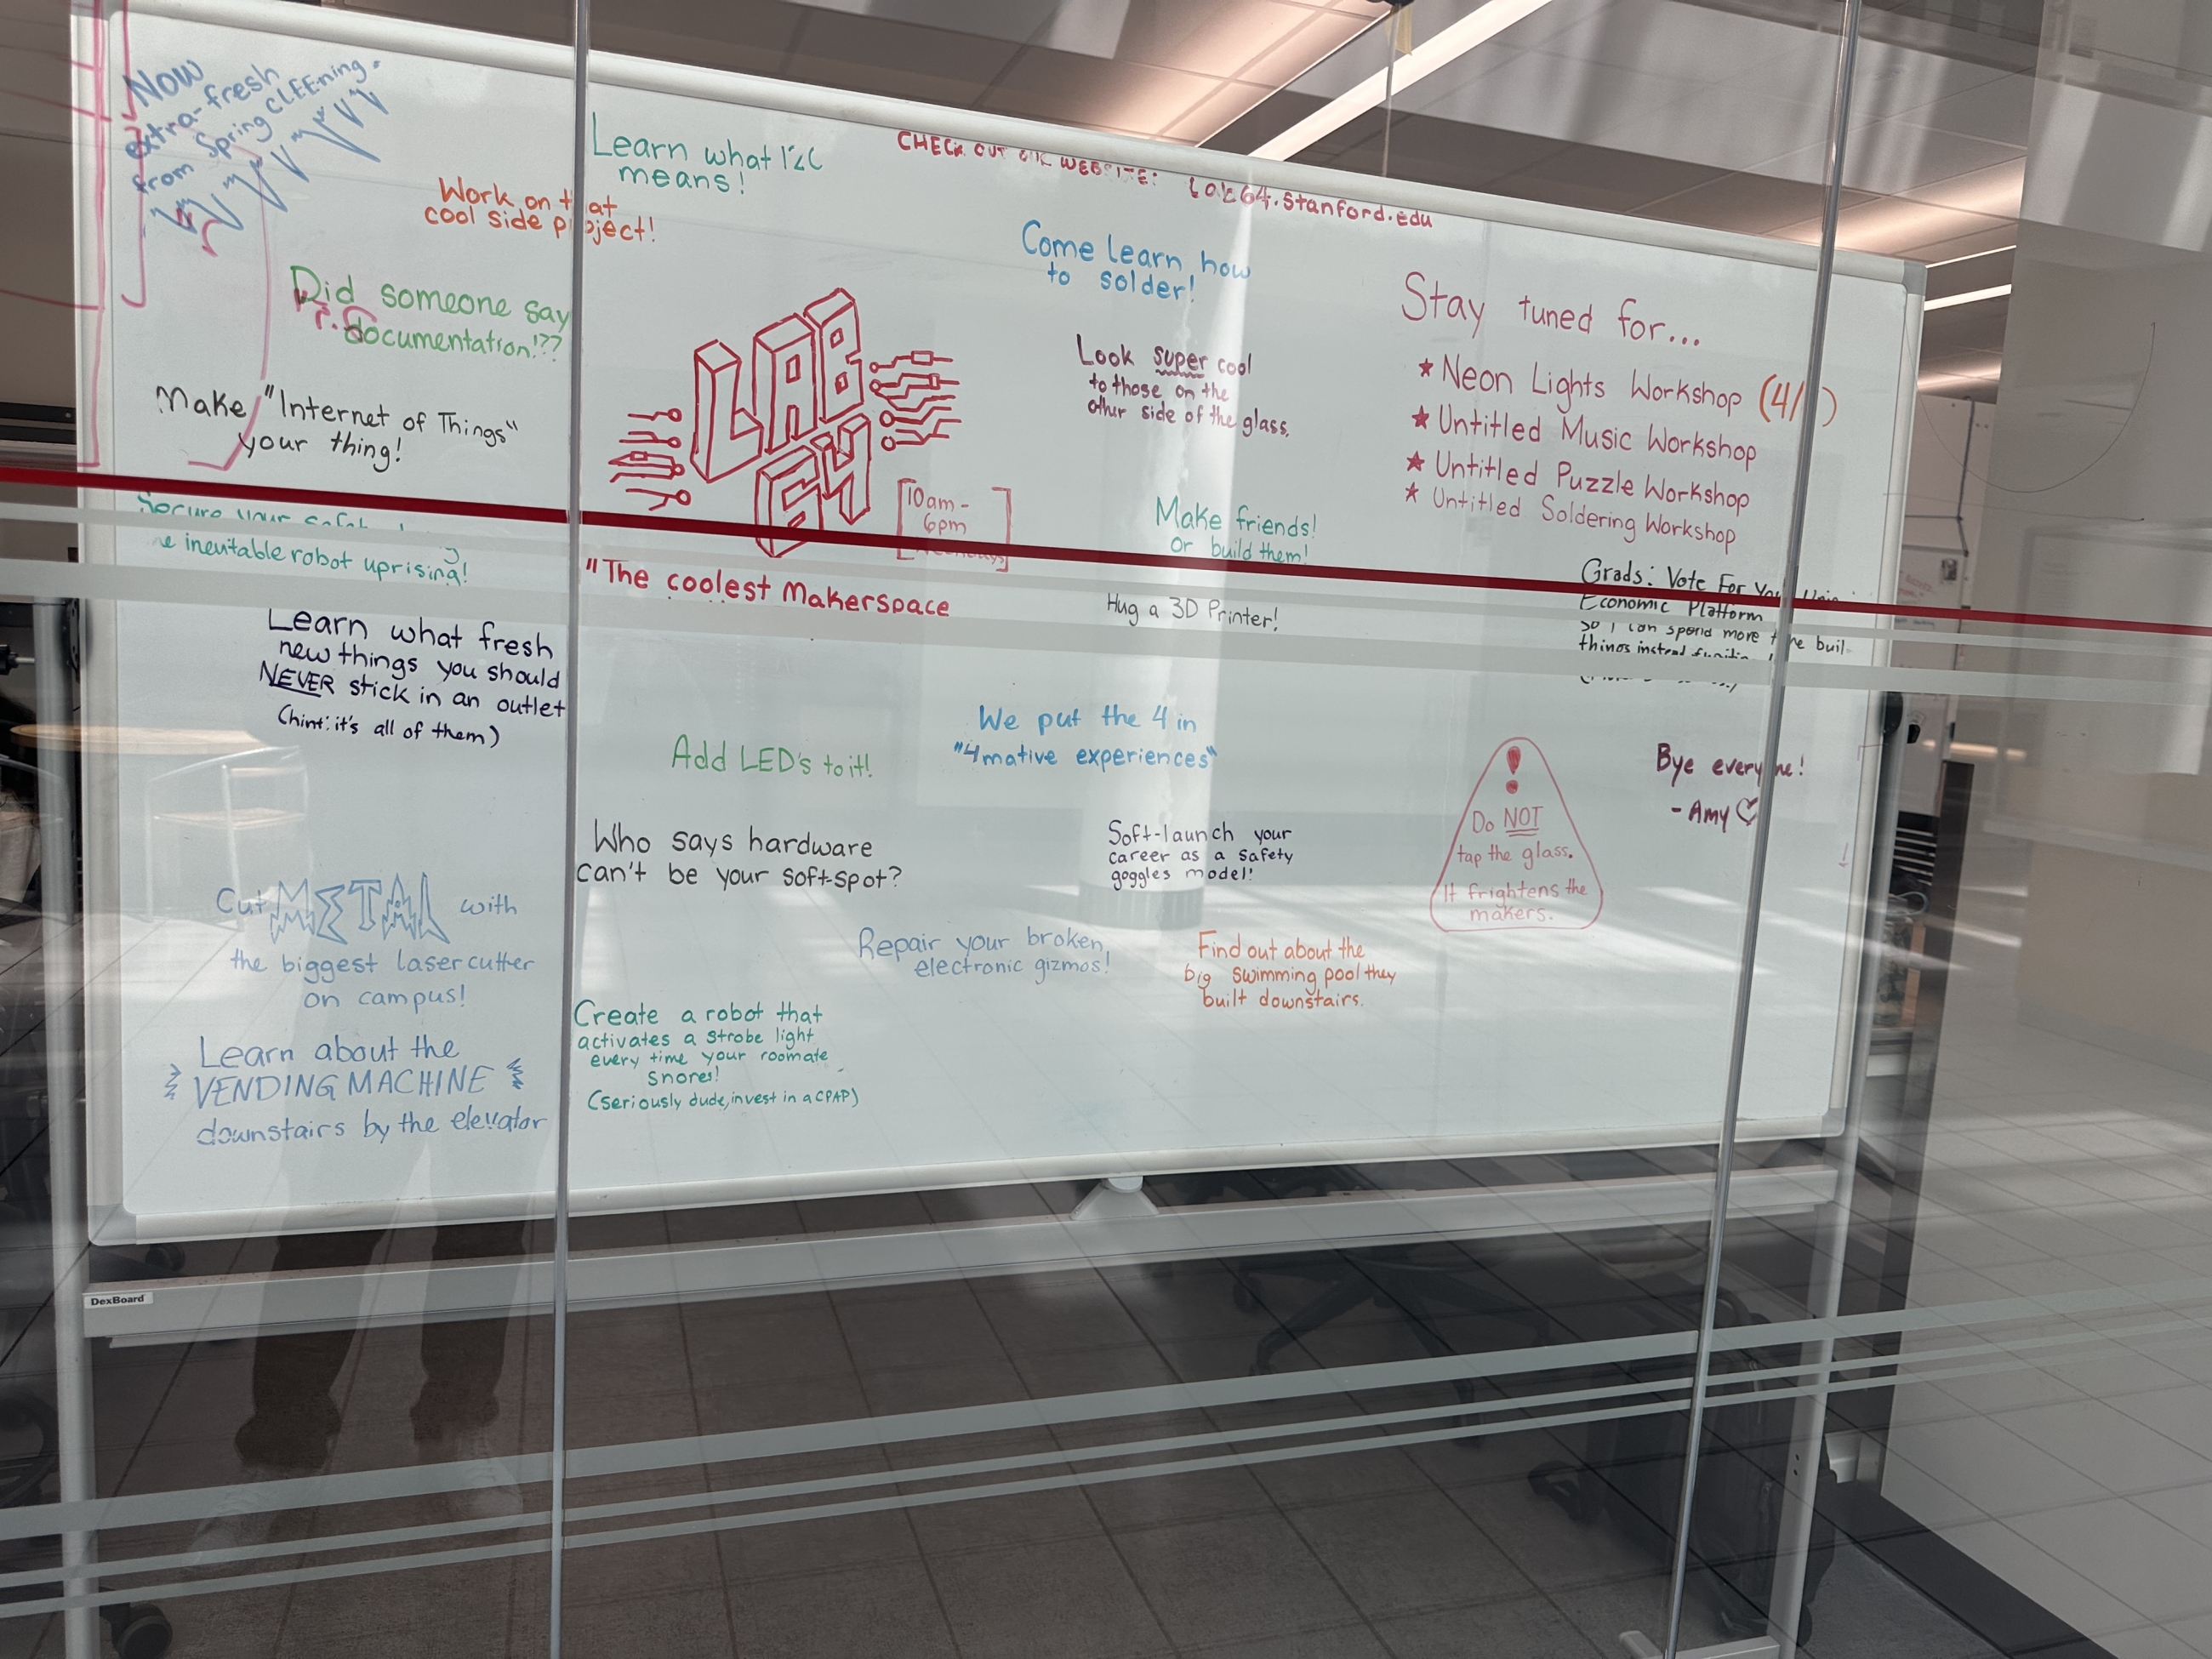 Now
extra-fresh
from Spring CLEEning.
Work on that
cool side project!
Learn what I2C
means!
CHECK OUT OUR WEBSITE: lab64.stanford.edu
Did someone say
documentation!??
Come learn how
to solder!
Make "Internet of Things"
your thing!
LAB
64
[10am -
6pm
weekdays]
Look super cool
to those on the
other side of the glass.
Stay tuned for...
★ Neon Lights Workshop (4/
★ Untitled Music Workshop
★ Untitled Puzzle Workshop
★ Untitled Soldering Workshop
Make friends!
Or build them!
Secure your
inevitable robot uprising!
"The coolest Makerspace
Hug a 3D Printer!
Grads: Vote For Your
Economic Platform
So I can spend more time
things instead
Learn what fresh
new things you should
NEVER stick in an outlet
(hint: it's all of them)
We put the 4 in
"4mative experiences"
Add LED's to it!
Bye everyone!
- Amy ♡
!
Do NOT
tap the glass.
It frightens the
makers.
Who says hardware
can't be your soft-spot?
Soft-launch your
career as a safety
goggles model!
Cut METAL with
the biggest laser cutter
on campus!
Repair your broken
electronic gizmos!
Find out about the
big swimming pool they
built downstairs.
Create a robot that
activates a strobe light
every time your roomate
snores!
(seriously dude, invest in a CPAP)
Learn about the
VENDING MACHINE
downstairs by the elevator
DexBoard